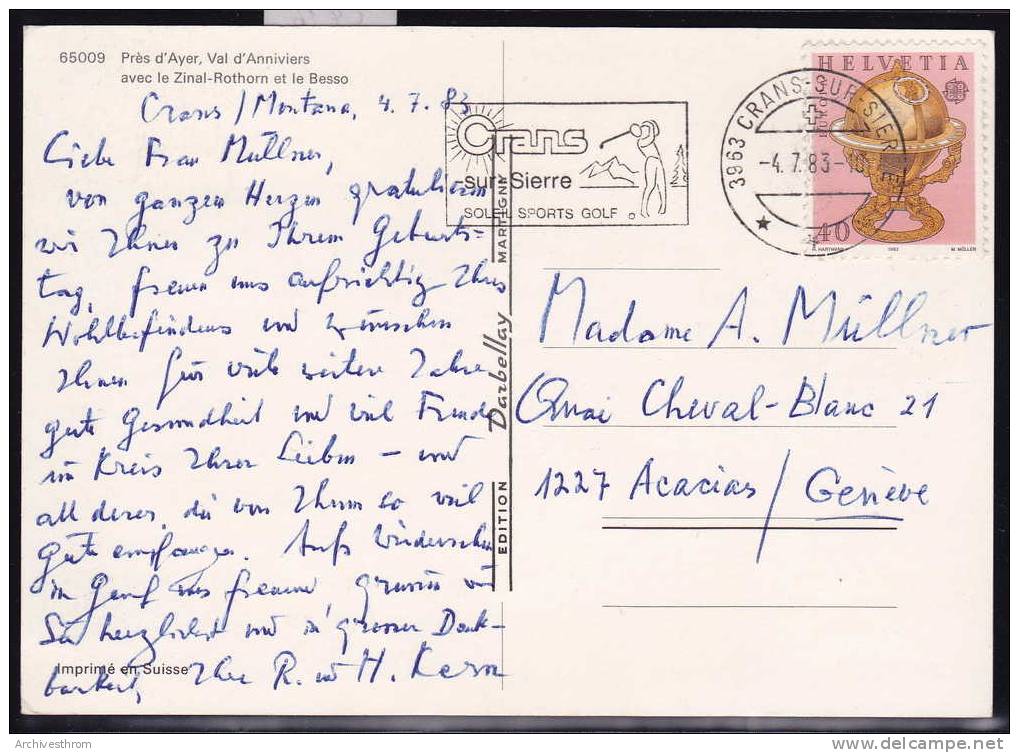 65009 Près d'Ayer, Val d'Anniviers
avec le Zinal-Rothorn et le Besso
Crans / Montana, 4.7.83
Liebe Frau Müllner,
von ganzem Herzen gratulieren
wir Ihnen zu Ihrem Geburts-
tag, freuen uns aufrichtig Ihres
Wohlbefindens und wünschen
Ihnen für viele weitere Jahre
gute Gesundheit und viel Freude
im Kreis Ihrer Lieben – und
all derer, die von Ihnen so viel
Gute empfangen. Aufs Wiedersehen
in Genf uns freuend, grüssen wir
Sie herzlichst und in grosser Dank-
barkeit, Ihre R. und H. Kern
Imprimé en Suisse
EDITION Darbellay MARTIGNY
Crans
sur Sierre
SOLEIL SPORTS GOLF
3963 CRANS-SUR-SIERRE
-4.7.83-10
HELVETIA
40
HARTMANN 1983 M. MÜLLER
Madame A. Müllner
Quai Cheval-Blanc 21
1227 Acacias / Genève
Archivesthrom
delcampe.net